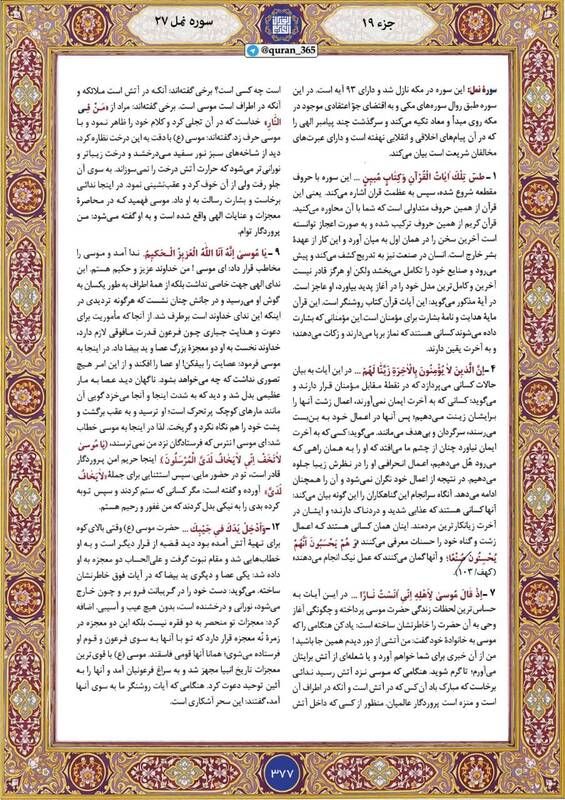 جزء ۱۹
سوره نمل ۲۷
@quran_365
سورهٔ نمل: این سوره در مکه نازل شد و دارای ۹۳ آیه است. در این
سوره طبق روال سوره‌های مکی و به اقتضای جوّ اعتقادی موجود در
مکه روی مبدأ و معاد تکیه می‌کند و سرگذشت چند پیامبر الهی را
که در آن پیام‌های اخلاقی و انقلابی نهفته است و دارای عبرت‌های
مخالفان شریعت است بیان می‌کند.
۱ – طس تِلْكَ آیَاتُ الْقُرْآنِ وَكِتَابٍ مُبِینٍ ... این سوره با حروف
مقطعه شروع شده، سپس به عظمت قرآن اشاره می‌کند. یعنی این
قرآن از همین حروف متداولی است که شما با آن محاوره می‌کنید.
قرآن کریم از همین حروف ترکیب شده و به صورت اعجاز توانسته
است آخرین سخن را در همان اول به میان آورد و این کار از عهدهٔ
بشر خارج است. انسان در صنعت نیز به تدریج کشف می‌کند و پیش
می‌رود و صنایع خود را تکامل می‌بخشد ولکن او هرگز قادر نیست
آخرین و کامل‌ترین مدل خود را در آغاز پدید بیاورد، او عاجز است.
در آیهٔ مذکور می‌گوید: این آیات قرآن کتاب روشنگر است. این قرآن
مایهٔ هدایت و نامهٔ بشارت برای مؤمنان است. این مؤمنانی که بشارت
داده می‌شوند کسانی هستند که نماز برپا می‌دارند و زکات می‌دهند؛
و به آخرت یقین دارند.
۴ – إِنَّ الَّذِینَ لَا یُؤْمِنُونَ بِالْآخِرَةِ زَیَّنَّا لَهُمْ ... در این آیات به بیان
حالات کسانی می‌پردازد که در نقطهٔ مقابل مؤمنان قرار دارند و
می‌گوید: کسانی که به آخرت ایمان نمی‌آورند، اعمال زشت آنها را
برایشان زینت می‌دهیم؛ پس آنها در اعمال خود به بن‌بست
می‌رسند، سرگردان و بی‌هدف می‌مانند. می‌گوید: کسی که به آخرت
ایمان نیاورد چنان از چشم ما می‌افتد که او را به همان راهی که
می‌رود هُل می‌دهیم، اعمال انحرافی او را در نظرش زیبا جلوه
می‌دهیم. در نتیجه از اعمال خود نگران نمی‌شود و آن را همچنان
ادامه می‌دهد. آنگاه سرانجام این گناهکاران را این گونه بیان می‌کند:
آنها کسانی هستند که عذابی شدید و دردناک دارند؛ و ایشان در
آخرت زیانکارترین مردمند. اینان همان کسانی هستند که اعمال
زشت و گناه خود را حسنات معرفی می‌کنند ﴿وَ هُمْ یَحْسَبُونَ أَنَّهُمْ
یُحْسِنُونَ صُنْعًا﴾؛ و آنها گمان می‌کنند که عمل نیک انجام می‌دهند»
(کهف/ ۱۰۳).
۷ – إِذْ قَالَ مُوسَى لِأَهْلِهِ إِنِّی آنَسْتُ نَارًا ... در این آیات به
حساس‌ترین لحظات زندگی حضرت موسی پرداخته و چگونگی آغاز
وحی به آن حضرت را خاطرنشان ساخته است: یاد کن هنگامی را که
موسی به خانوادهٔ خود گفت: من آتشی از دور دیدم همین جا باشید!
من از آن خبری برای شما خواهم آورد و یا شعله‌ای از آتش برایتان
می‌آورم؛ تا گرم شوید. هنگامی که موسی نزد آتش رسید ندائی
برخاست که مبارک باد آن کس که در آتش است و آنکه در اطراف آن
است و منزه است پروردگار عالمیان. منظور از کسی که داخل آتش
است چه کسی است؟ برخی گفته‌اند: آنکه در آتش است ملائکه و
آنکه در اطراف است موسی است. برخی گفته‌اند: مراد از «مَنْ فِی
النَّارِ» خداست که در آن تجلی کرد و کلام خود را ظاهر نمود و با
موسی حرف زد. گفته‌اند: موسی (ع) با دقت به این درخت نظاره کرد،
دید از شاخه‌های سبز نور سفید می‌درخشد و درخت زیباتر و
نورانی‌تر می‌شود که حرارت آتش درخت را نمی‌سوزاند. به سوی آن
جلو رفت ولی از آن خوف کرد و عقب‌نشینی نمود. در اینجا ندائی
برخاست و بشارت رسالت به او داد. موسی فهمید که در محاصرهٔ
معجزات و عنایات الهی واقع شده است و به او گفته می‌شود: من
پروردگار توام.
۹ – یَا مُوسَى إِنَّهُ أَنَا اللَّهُ الْعَزِیزُ الْحَكِیمُ. ندا آمد و موسی را
مخاطب قرار داد: ای موسی! من خداوند عزیز و حکیم هستم. این
ندای الهی جهت خاصی نداشت بلکه از همهٔ اطراف به طور یکسان به
گوش او می‌رسید و در جانش چنان نشست که هرگونه تردیدی در
اینکه این ندای خداوند است برطرف شد. از آنجا که مأموریت برای
دعوت و هدایت جباری چون فرعون قدرت مافوقی لازم دارد،
خداوند نخست به او دو معجزهٔ بزرگ عصا و ید بیضا داد. در اینجا به
موسی فرمود: عصایت را بیفکن! او عصا را افکند و از این امر هیچ
تصوری نداشت که چه می‌خواهد بشود. ناگهان دید عصا به مار
عظیمی بدل شد و دید که به شدت اینجا و آنجا می‌خزد گویی آن
مانند مارهای کوچک پرتحرک است؛ او ترسید و به عقب برگشت و
پشت خود را هم نگاه نکرد و گریخت. لذا در اینجا به موسی خطاب
شد: ای موسی! نترس که فرستادگان نزد من نمی ترسند، ﴿یَا مُوسَى
لَا تَخَفْ إِنِّی لَا یَخَافُ لَدَیَّ الْمُرْسَلُونَ﴾ اینجا حریم امن پروردگار
قادر است، تو در حضور مایی. سپس استثنایی برای جملهٔ «لَا یَخَافُ
لَدَیَّ» آورده و گفته است: مگر کسانی که ستم کردند و سپس توبه
کرده بدی را به نیکی بدل کردند که من غفور و رحیم هستم.
۱۲ – وَأَدْخِلْ یَدَكَ فِی جَیْبِكَ ... حضرت موسی (ع) وقتی بالای کوه
برای تهیهٔ آتش آمده بود دید قضیه از قرار دیگر است و به او
خطاب‌هایی شد و مقام نبوت گرفت و علی‌الحساب دو معجزه به او
داده شد: یکی عصا و دیگری ید بیضا که در آیات فوق خاطرنشان
ساخته. می‌گوید: دست خود را در گریبانت فرو بر و چون خارج
می‌شود، نورانی و درخشنده است، بدون هیچ عیب و آسیبی. اضافه
کرد: معجزات تو منحصر به دو فقره نیست بلکه این دو معجزه در
زمرهٔ نُه معجزه قرار دارد که تو با آنها به سوی فرعون و قوم او
فرستاده می‌شوی؛ همانا آنها قومی فاسقند. موسی (ع) با قوی‌ترین
معجزات تاریخ انبیا مجهز شد و به سراغ فرعونیان آمد و آنها را به
آئین توحید دعوت کرد. هنگامی که آیات روشنگر ما به سوی آنها
آمد، گفتند: این سحر آشکاری است.
۳۷۷